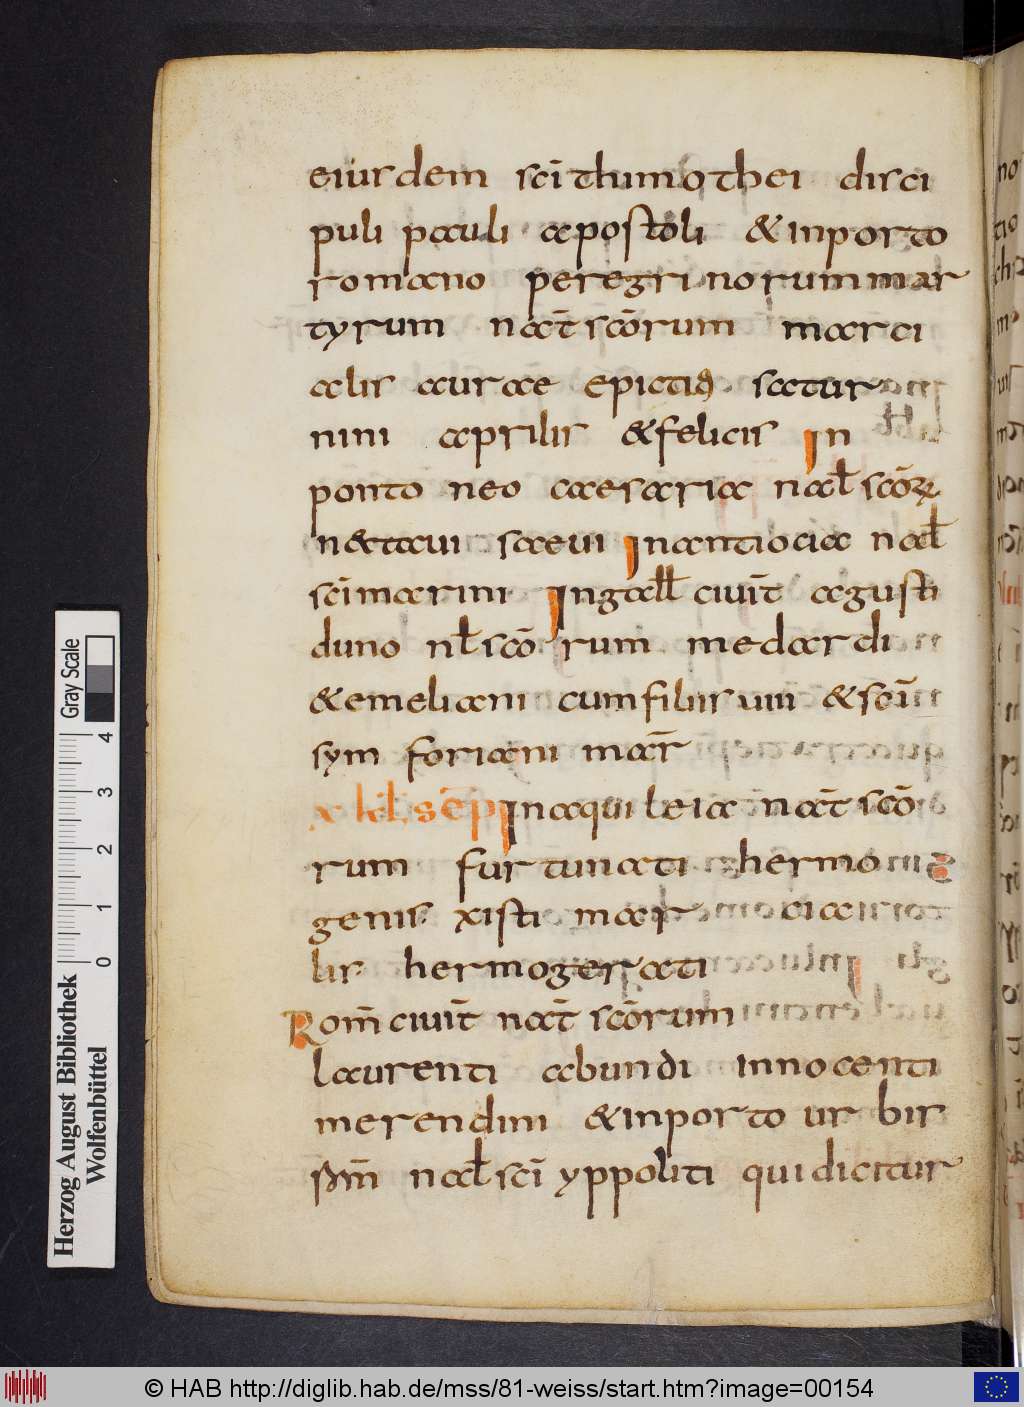 eiusdem scī thimothei disci
puli pauli apostoli & inporto
romano peregrinorum mar
tyrum nat̄ scōrum marci
alis aurae epictiꝯ satur
nini aprilis & felicis In
ponto neo caesaria nat̄ scōrꝫ
nataui saeui Inantiocia nat̄
scī marini Ingall civit̄ agusti
duno nt̄ scō rum medardi
& emeliani cumfiliis uiii & scī
symforiani mar̄
x kl sēp Inaquileia nat̄ scō
rum furtunati hermo
genis xisti mar cica
lis hermogerati
Rom̄ civit̄ nat̄ scōrum
laurenti abundi innocenti
merendini & inporto ur bis
nat̄ scī yppoliti qui dicitur
Gray Scale
4 3 2 1 0
Herzog August Bibliothek
Wolfenbüttel
© HAB http://diglib.hab.de/mss/81-weiss/start.htm?image=00154